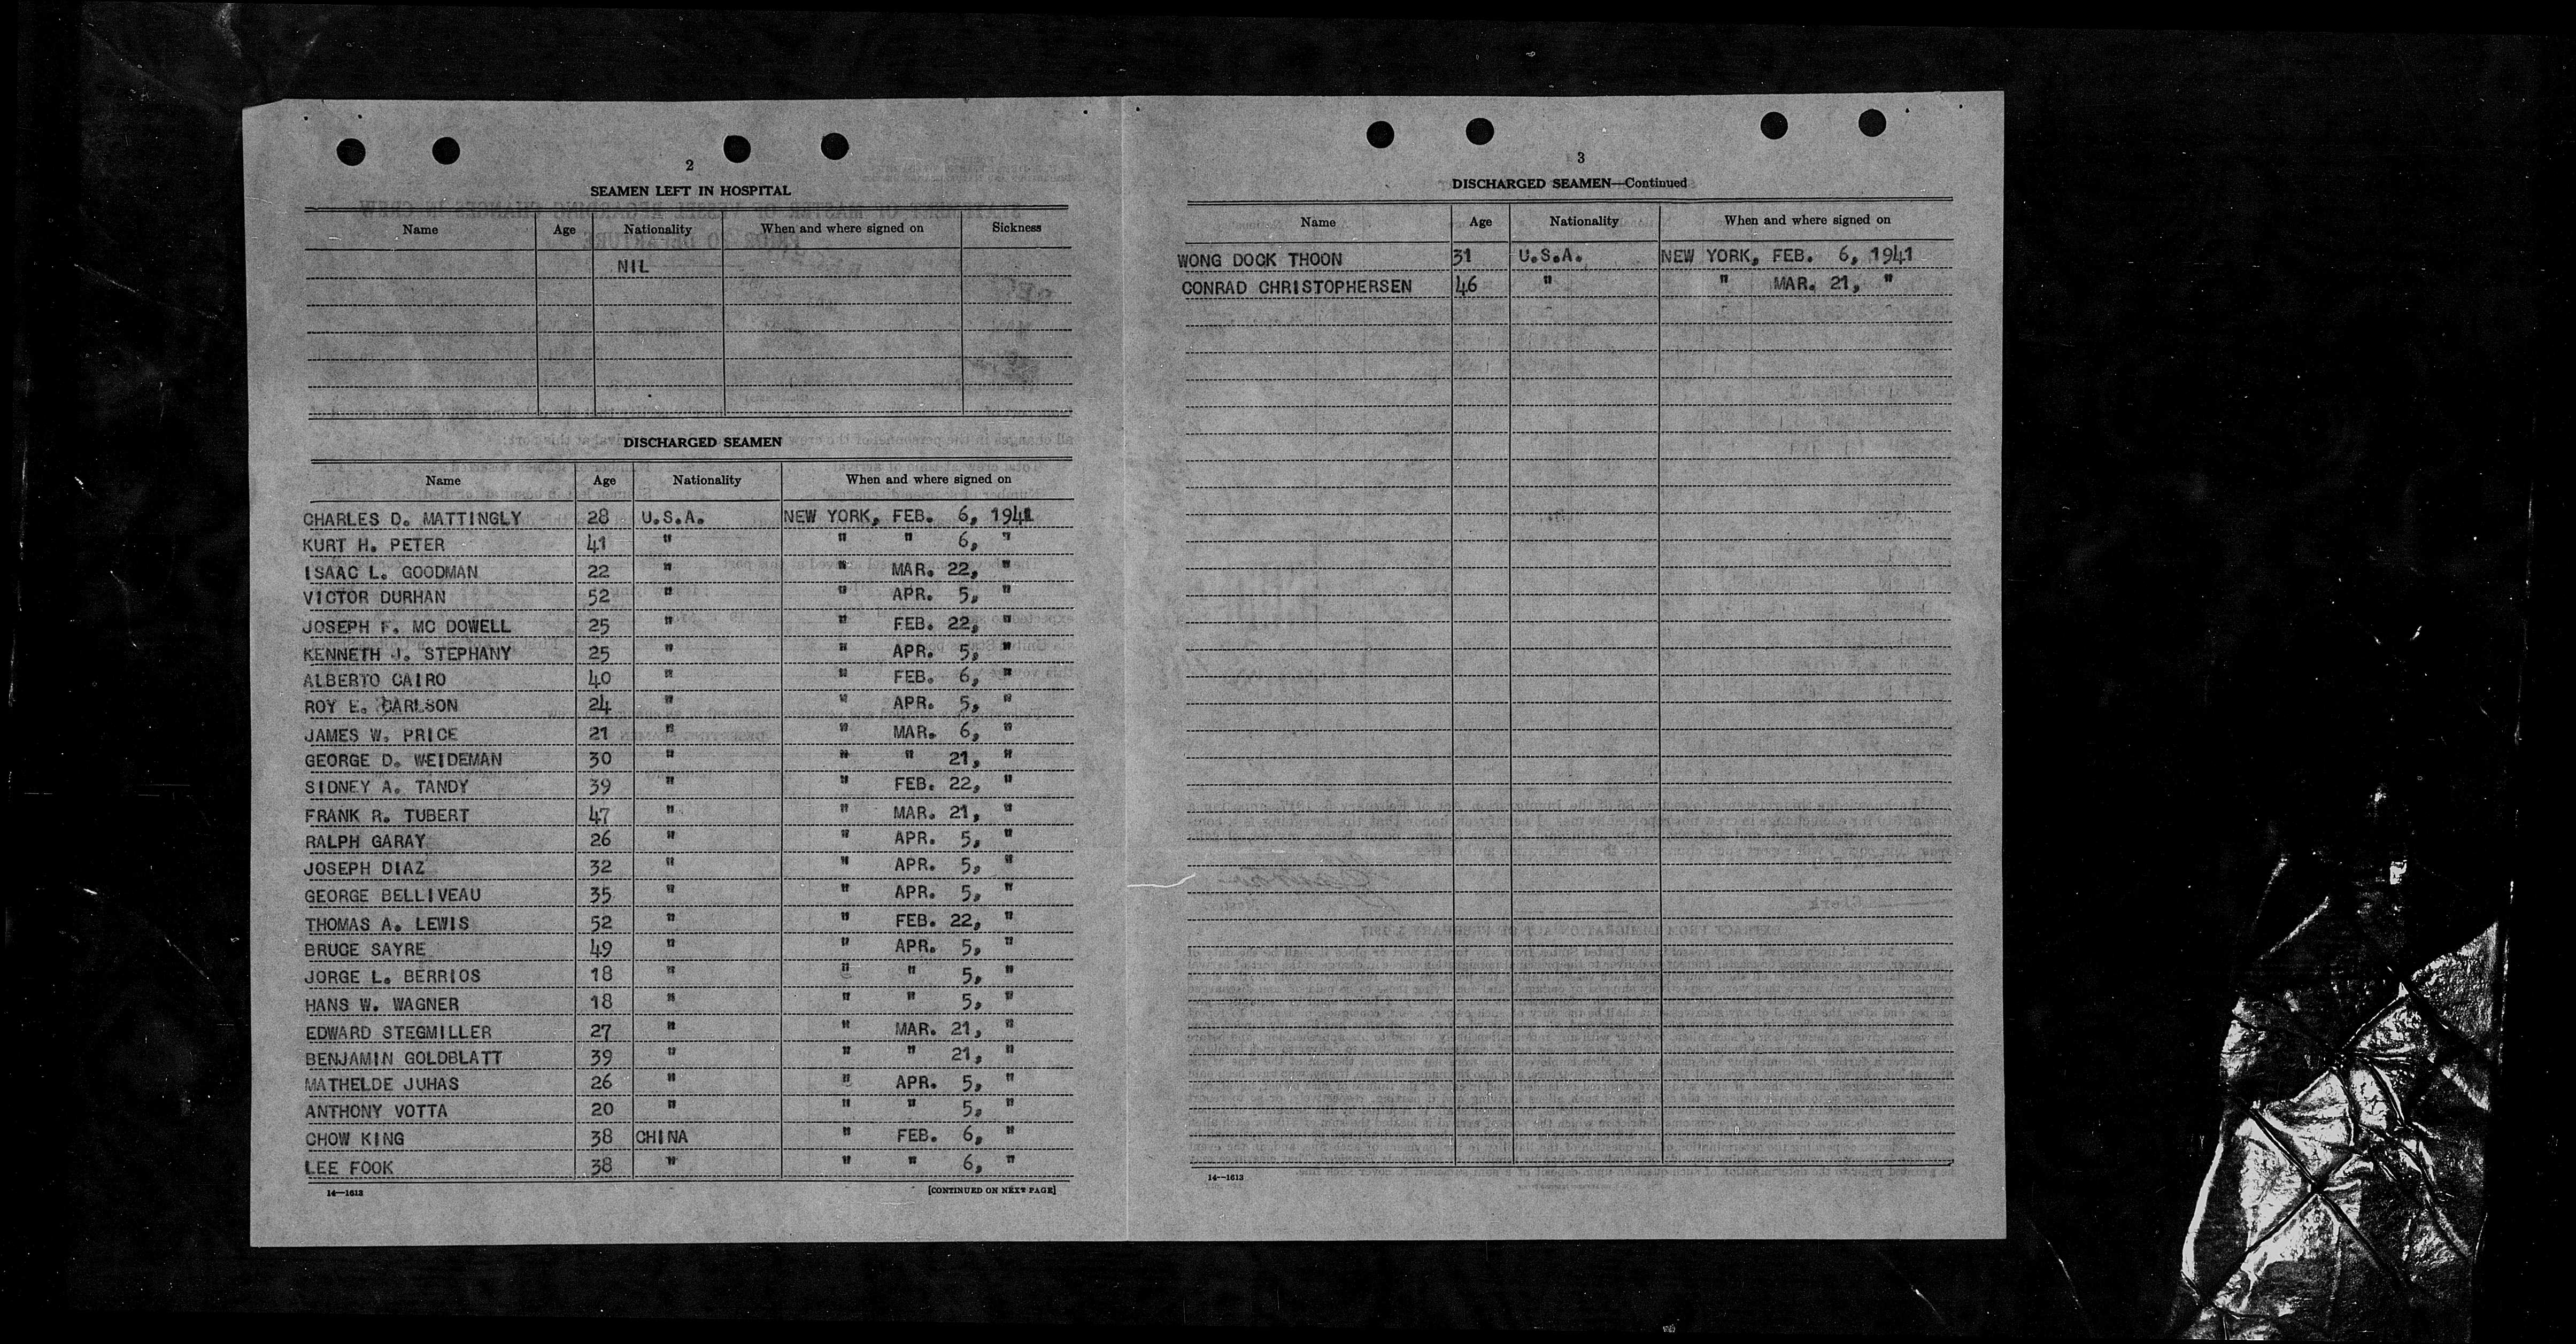 2
SEAMEN LEFT IN HOSPITAL
Name Age Nationality When and where signed on Sickness
NIL
DISCHARGED SEAMEN
Name Age Nationality When and where signed on
CHARLES D. MATTINGLY 28 U.S.A. NEW YORK, FEB. 6, 1941
KURT H. PETER 41 " " " 6, "
ISAAC L. GOODMAN 22 " " MAR. 22, "
VICTOR DURHAN 52 " " APR. 5, "
JOSEPH F. MC DOWELL 25 " " FEB. 22, "
KENNETH J. STEPHANY 25 " " APR. 5, "
ALBERTO CAIRO 40 " " FEB. 6, "
ROY E. CARLSON 24 " " APR. 5, "
JAMES W. PRICE 21 " " MAR. 6, "
GEORGE D. WEIDEMAN 30 " " " 21, "
SIDNEY A. TANDY 39 " " FEB. 22, "
FRANK R. TUBERT 47 " " MAR. 21, "
RALPH GARAY 26 " " APR. 5, "
JOSEPH DIAZ 32 " " APR. 5, "
GEORGE BELLIVEAU 35 " " APR. 5, "
THOMAS A. LEWIS 52 " " FEB. 22, "
BRUCE SAYRE 49 " " APR. 5, "
JORGE L. BERRIOS 18 " " " 5, "
HANS W. WAGNER 18 " " " 5, "
EDWARD STEGMILLER 27 " " MAR. 21, "
BENJAMIN GOLDBLATT 39 " " " 21, "
MATHELDE JUHAS 26 " " APR. 5, "
ANTHONY VOTTA 20 " " " 5, "
CHOW KING 38 CHINA " FEB. 6, "
LEE FOOK 38 " " " 6, "
14—1613 [CONTINUED ON NEXT PAGE]
3
DISCHARGED SEAMEN—Continued
Name Age Nationality When and where signed on
WONG DOCK THOON 31 U.S.A. NEW YORK, FEB. 6, 1941
CONRAD CHRISTOPHERSEN 46 " " MAR. 21, "
14—1613